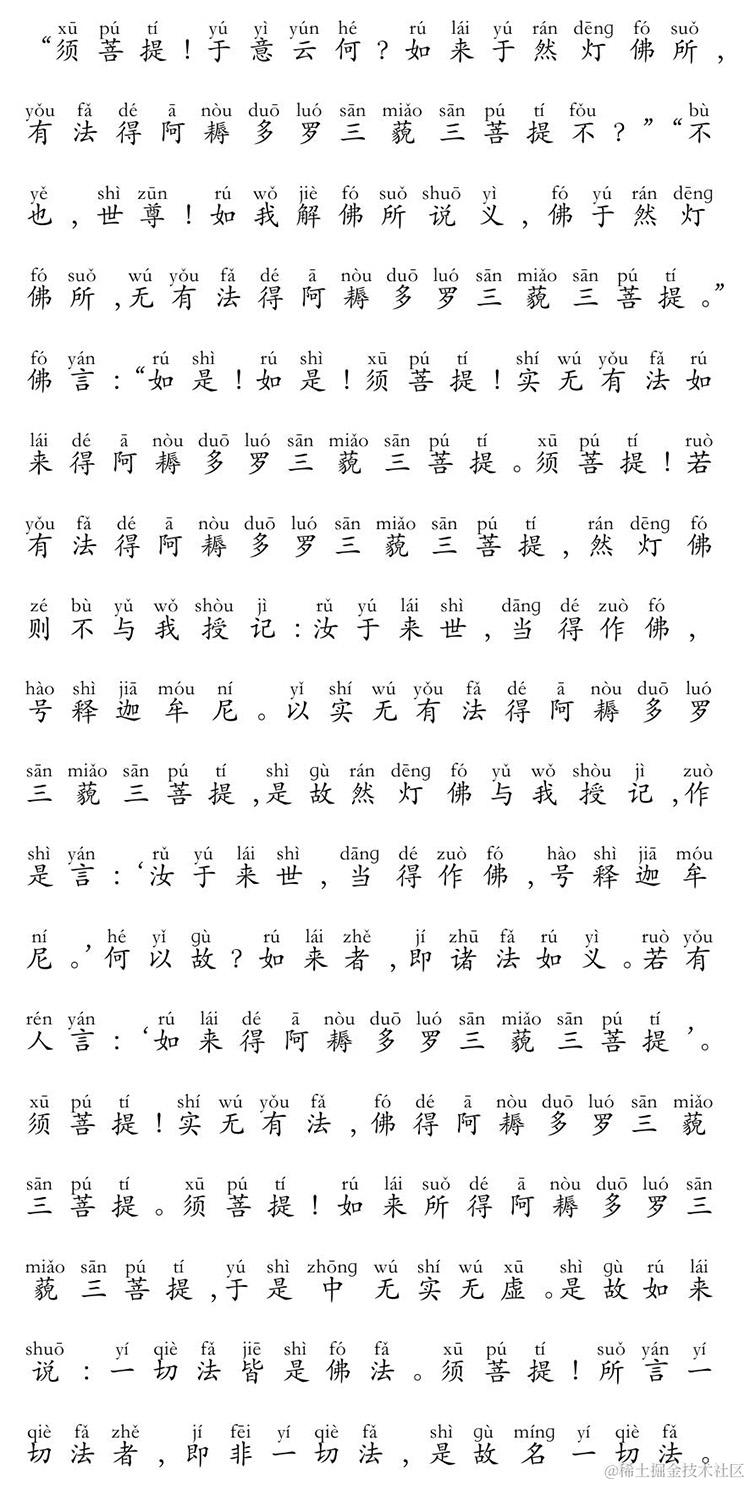 xū pú tí yú yì yún hé rú lái yú rán dēng fó suǒ
“须菩提！于意云何？如来于然灯佛所，
yǒu fǎ dé ā nòu duō luó sān miǎo sān pú tí fǒu bù
有法得阿耨多罗三藐三菩提不？”“不
yě shì zūn rú wǒ jiè fó suǒ shuō yì fó yú rán dēng
也，世尊！如我解佛所说义，佛于然灯
fó suǒ wú yǒu fǎ dé ā nòu duō luó sān miǎo sān pú tí
佛所，无有法得阿耨多罗三藐三菩提。”
fó yán rú shì rú shì xū pú tí shí wú yǒu fǎ rú
佛言：“如是！如是！须菩提！实无有法如
lái dé ā nòu duō luó sān miǎo sān pú tí xū pú tí ruò
来得阿耨多罗三藐三菩提。须菩提！若
yǒu fǎ dé ā nòu duō luó sān miǎo sān pú tí rán dēng fó
有法得阿耨多罗三藐三菩提，然灯佛
zé bù yǔ wǒ shòu jì rǔ yú lái shì dāng dé zuò fó
则不与我授记：汝于来世，当得作佛，
hào shì jiā móu ní yǐ shí wú yǒu fǎ dé ā nòu duō luó
号释迦牟尼。以实无有法得阿耨多罗
sān miǎo sān pú tí shì gù rán dēng fó yǔ wǒ shòu jì zuò
三藐三菩提，是故然灯佛与我授记，作
shì yán rǔ yú lái shì dāng dé zuò fó hào shì jiā móu
是言：‘汝于来世，当得作佛，号释迦牟
ní hé yǐ gù rú lái zhě jí zhū fǎ rú yì ruò yǒu
尼。’何以故？如来者，即诸法如义。若有
rén yán rú lái dé ā nòu duō luó sān miǎo sān pú tí
人言：‘如来得阿耨多罗三藐三菩提’。
xū pú tí shí wú yǒu fǎ fó dé ā nòu duō luó sān miǎo
须菩提！实无有法，佛得阿耨多罗三藐
sān pú tí xū pú tí rú lái suǒ dé ā nòu duō luó sān
三菩提。须菩提！如来所得阿耨多罗三
miǎo sān pú tí yú shì zhōng wú shí wú xū shì gù rú lái
藐三菩提，于是中无实无虚。是故如来
shuō yí qiè fǎ jiē shì fó fǎ xū pú tí suǒ yán yí
说：一切法皆是佛法。须菩提！所言一
qiè fǎ zhě jí fēi yí qiè fǎ shì gù míng yí qiè fǎ
切法者，即非一切法，是故名一切法。
@稀土掘金技术社区